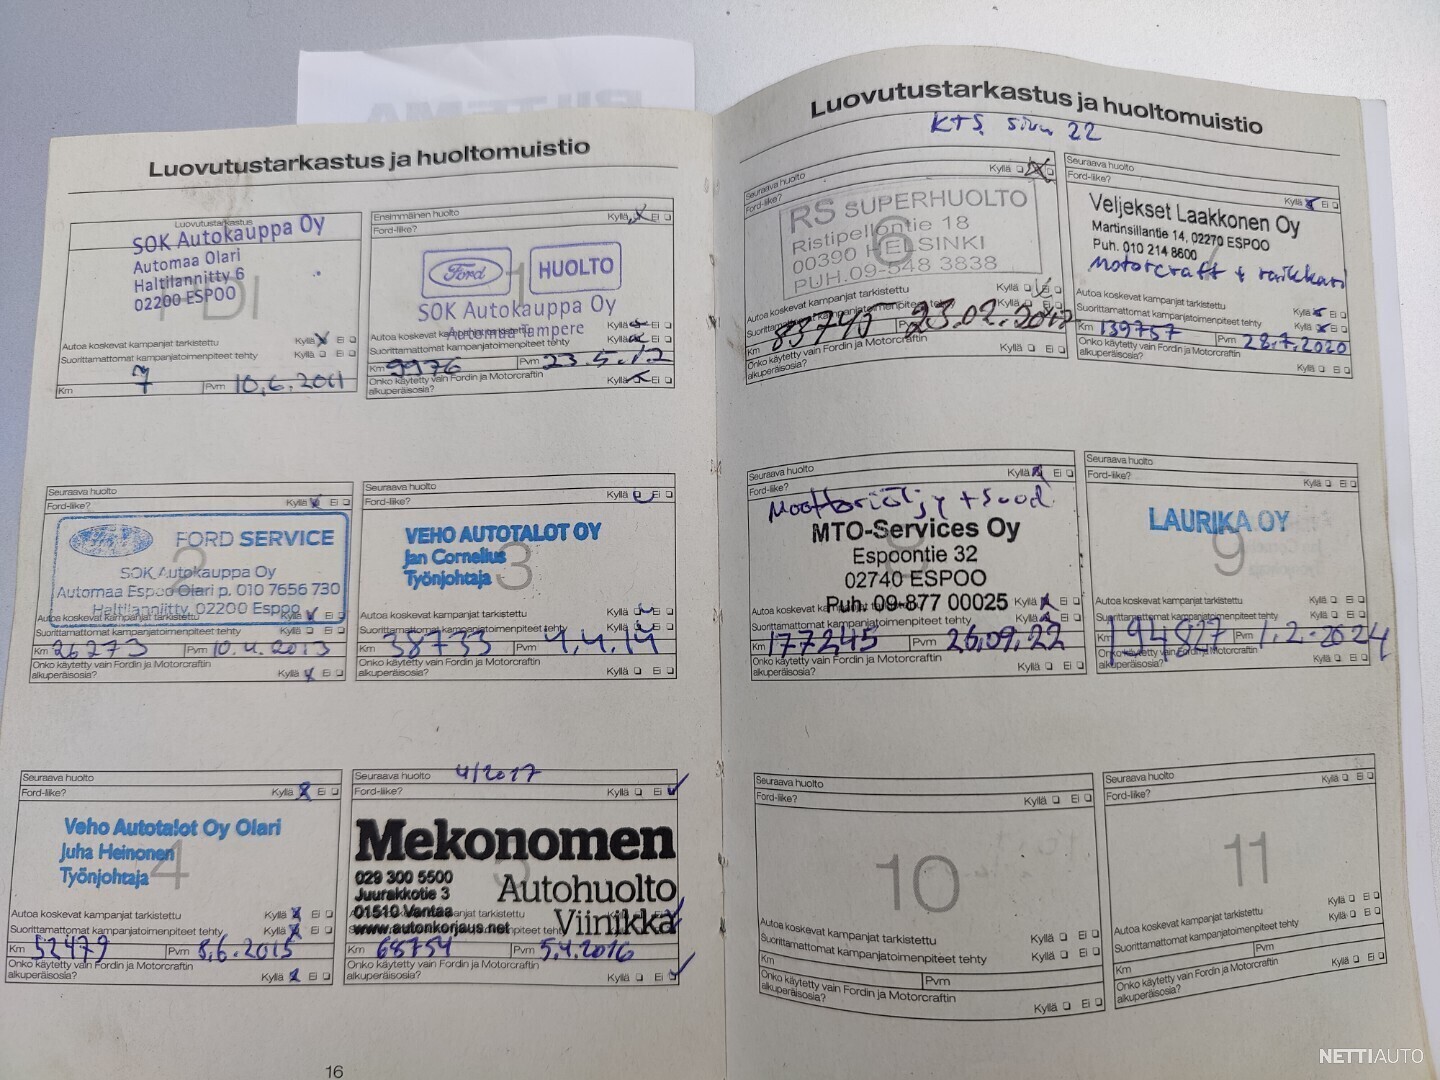 Luovutustarkastus ja huoltomuistio
Luovutustarkastus
SOK Autokauppa Oy
Automaa Olari
Haltilannitty 6
02200 ESPOO
PDI
Autoa koskevat kampanjat tarkistettu Kyllä Ei
Suorittamattomat kampanjatoimenpiteet tehty Kyllä Ei
Km 7 Pvm 10.6.2011
Ensimmäinen huolto Kyllä Ei
Ford-liike?
1
Ford HUOLTO
SOK Autokauppa Oy
Automaa Tampere
Autoa koskevat kampanjat tarkistettu Kyllä Ei
Suorittamattomat kampanjatoimenpiteet tehty Kyllä Ei
Km 9976 Pvm 23.5.12
Onko käytetty vain Fordin ja Motorcraftin
alkuperäisosia? Kyllä Ei
Seuraava huolto
Ford-liike? Kyllä Ei
2
FORD SERVICE
SOK Autokauppa Oy
Automaa Espoo Olari p. 010 7656 730
Haltilanniitty, 02200 Espoo
Autoa koskevat kampanjat tarkistettu Kyllä Ei
Suorittamattomat kampanjatoimenpiteet tehty Kyllä Ei
Km 26273 Pvm 10.4.2013
Onko käytetty vain Fordin ja Motorcraftin
alkuperäisosia? Kyllä Ei
Seuraava huolto
Ford-liike? Kyllä Ei
3
VEHO AUTOTALOT OY
Jan Cornelius
Työnjohtaja
Autoa koskevat kampanjat tarkistettu Kyllä Ei
Suorittamattomat kampanjatoimenpiteet tehty Kyllä Ei
Km 38733 Pvm 4.4.14
Onko käytetty vain Fordin ja Motorcraftin
alkuperäisosia? Kyllä Ei
Seuraava huolto
Ford-liike? Kyllä Ei
4
Veho Autotalot Oy Olari
Juha Heinonen
Työnjohtaja
Autoa koskevat kampanjat tarkistettu Kyllä Ei
Suorittamattomat kampanjatoimenpiteet tehty Kyllä Ei
Km 52479 Pvm 8.6.2015
Onko käytetty vain Fordin ja Motorcraftin
alkuperäisosia? Kyllä Ei
Seuraava huolto 4/2017
Ford-liike? Kyllä Ei
5
Mekonomen
029 300 5500
Juurakkotie 3
01510 Vantaa
www.autonkorjaus.net
Autohuolto
Viinikka
Autoa koskevat kampanjat tarkistettu
Suorittamattomat kampanjatoimenpiteet tehty
Km 68754 Pvm 5.4.2016
Onko käytetty vain Fordin ja Motorcraftin
alkuperäisosia? Kyllä Ei
16
Luovutustarkastus ja huoltomuistio
KTS. sivu 22
Seuraava huolto
Ford-liike? Kyllä
6
RS SUPERHUOLTO
Ristipellontie 18
00390 HELSINKI
PUH.09-548 3838
Autoa koskevat kampanjat tarkistettu Kyllä Ei
Suorittamattomat kampanjatoimenpiteet tehty Kyllä Ei
Km 83745 Pvm
Onko käytetty vain Fordin ja Motorcraftin
alkuperäisosia? Kyllä Ei
Seuraava huolto
Ford-liike? Kyllä Ei
Veljekset Laakkonen Oy
Martinsillantie 14, 02270 ESPOO
Puh. 010 214 8600
Motorcraft + raikkari
Autoa koskevat kampanjat tarkistettu Kyllä Ei
Suorittamattomat kampanjatoimenpiteet tehty Kyllä Ei
Km 139757 Pvm 28.7.2020
Onko käytetty vain Fordin ja Motorcraftin
alkuperäisosia? Kyllä Ei
Seuraava huolto
Ford-liike? Kyllä Ei
Moottoriöljy + suod.
8
MTO-Services Oy
Espoontie 32
02740 ESPOO
Puh. 09-877 00025
Autoa koskevat kampanjat tarkistettu Kyllä Ei
Suorittamattomat kampanjatoimenpiteet tehty Kyllä Ei
Km 177245 Pvm 26.09.22
Onko käytetty vain Fordin ja Motorcraftin
alkuperäisosia? Kyllä Ei
Seuraava huolto
Ford-liike? Kyllä Ei
9
LAURIKA OY
Autoa koskevat kampanjat tarkistettu Kyllä Ei
Suorittamattomat kampanjatoimenpiteet tehty Kyllä Ei
Km 194827 Pvm 1.2.2024
Onko käytetty vain Fordin ja Motorcraftin
alkuperäisosia? Kyllä Ei
Seuraava huolto
Ford-liike? Kyllä Ei
10
Autoa koskevat kampanjat tarkistettu Kyllä Ei
Suorittamattomat kampanjatoimenpiteet tehty Kyllä Ei
Km Pvm
Onko käytetty vain Fordin ja Motorcraftin
alkuperäisosia? Kyllä Ei
Seuraava huolto Kyllä Ei
Ford-liike?
11
Autoa koskevat kampanjat tarkistettu Kyllä Ei
Suorittamattomat kampanjatoimenpiteet tehty Kyllä Ei
Km Pvm
Onko käytetty vain Fordin ja Motorcraftin
alkuperäisosia? Kyllä Ei
NETTIAUTO